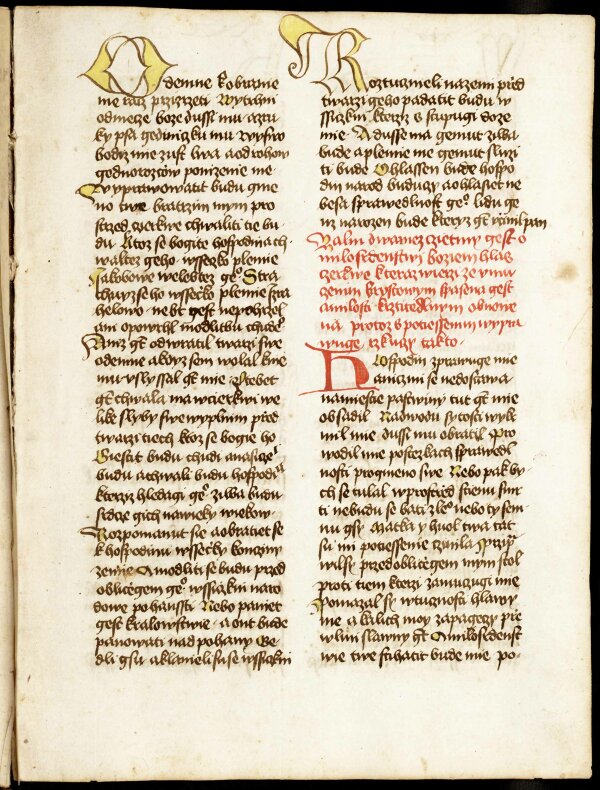 Odemne kobranie
nie racz przizrzeti Wytrhni
odmecze boze dussi mu azru
ky psa gedniczku mu Wyswo
bodiz mie zust lwa aodrohow
gednorozcow ponizenie me
Wyprawowatit budu gme
no twe bratrzim mym pro
strzed czerkwe chwaliti tie bu
du Ktoz se bogite hospodina ch
waltez geho wseczko plemie
Jakobowe welebtez ge° Stra
chayz se ho wsseczko plemie Izra
helowo nebt gest nepohrzel
ani opowrhl modlitbu chude°
Aniz gt odwratil twarzi swe
odemne abdyz sem wolal kne
mu vslyssal gt mie Ztebet
gt chwala ma wczierkwi we
like slyby swe wyplnim przed
twarzi tiech ktoz se bogie ho
Giestit budu chudi anasicze
budu achwali budu hospodi
kterziz hledagi ge° ziwa budu
srdcze gich nawieky wiekow
Rozpomanut sie aobratiet se
k hospodinu wssechy konczyny
zemie Amodliti se budu przed
obliczegem ge° wssiczkni naro
dowe pohansti Nebo paniet
gest kralowstwie a ont bude
panowati nad pohany Ge
dli gsu aklanieli su se wssiczkni
Roztuczneli nazemi przed
twarzi geho padatit budu w
ssiczkni kterziz sstupugi doze
mie A dusse ma gemut ziwa
bude aplemie me gemut slúzi
ti bude Ohlassen bude hospo
din narod buduczy aohlasiet ne
besa sprawedlnost ge° lidu ge
nz narozen bude kteryz gt vcinil pan
Zalm dwanezczietmy gest o
milosrdenstwi boziem hlas
czerkwe kteraz wierzi ze vmu
czenim krystowym spasena gest
amilosti krztitedlnyni obnowe
na protoz s potiessenim wypra
wuge rzkuczy takto
Hospodin zprawuge mie
aniczimi se nedostawa
namiestie pastwiny tut gt mie
obsadil Nadwodu sytosti wyk
mil mie dussi mu obratil Pro
wodil mie postezkach sprawedl
nosti progmeno swe Nebo pak by
ch se tulal wprostrzed stienu smr
ti nebudu se bati zle° nebo ty sem
nu gsy Matka y huol twa tat
su mi potiessenie czinila Przy
wilsy przedobliczegem mym stol
proti tiem kterzi zamuczugi mie
Pomazal sy wtucznosti hlawy
me a kalich moy zapagegy prze
wlmi slawny gt Amilosrdenst
wie twe stihatit bude mie po